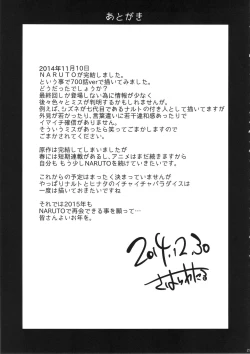 あとがき
2014年11月10日
NARUTOが完結しました。
という事で700話verで描いてみました。
どうだったでしょうか?
最終回しか登場しない為に情報が少なく
後々色々とミスが判明するかもしれませんが。
例えば、シズネが七代目であるナルトの付き人として描いてますが
外見が若かったり、言葉遣いに若干違和感あったりで
イマイチ確信がありません。
そういうミスがあったら笑ってごまかしますので
ごまかされてください。
原作は完結してしまいましたが
春には短期連載があるし、アニメはまだ続きますから
自分も もう少しNARUTOを続けていきたいです。
これからの予定はまったく決まっていませんが
やっぱりナルトとヒナタのイチャイチャパラダイスは
一度は描いておきたいですね
それでは2015年も
NARUTOで再会できる事を願って…
皆さんよいお年を。
2014.12.30